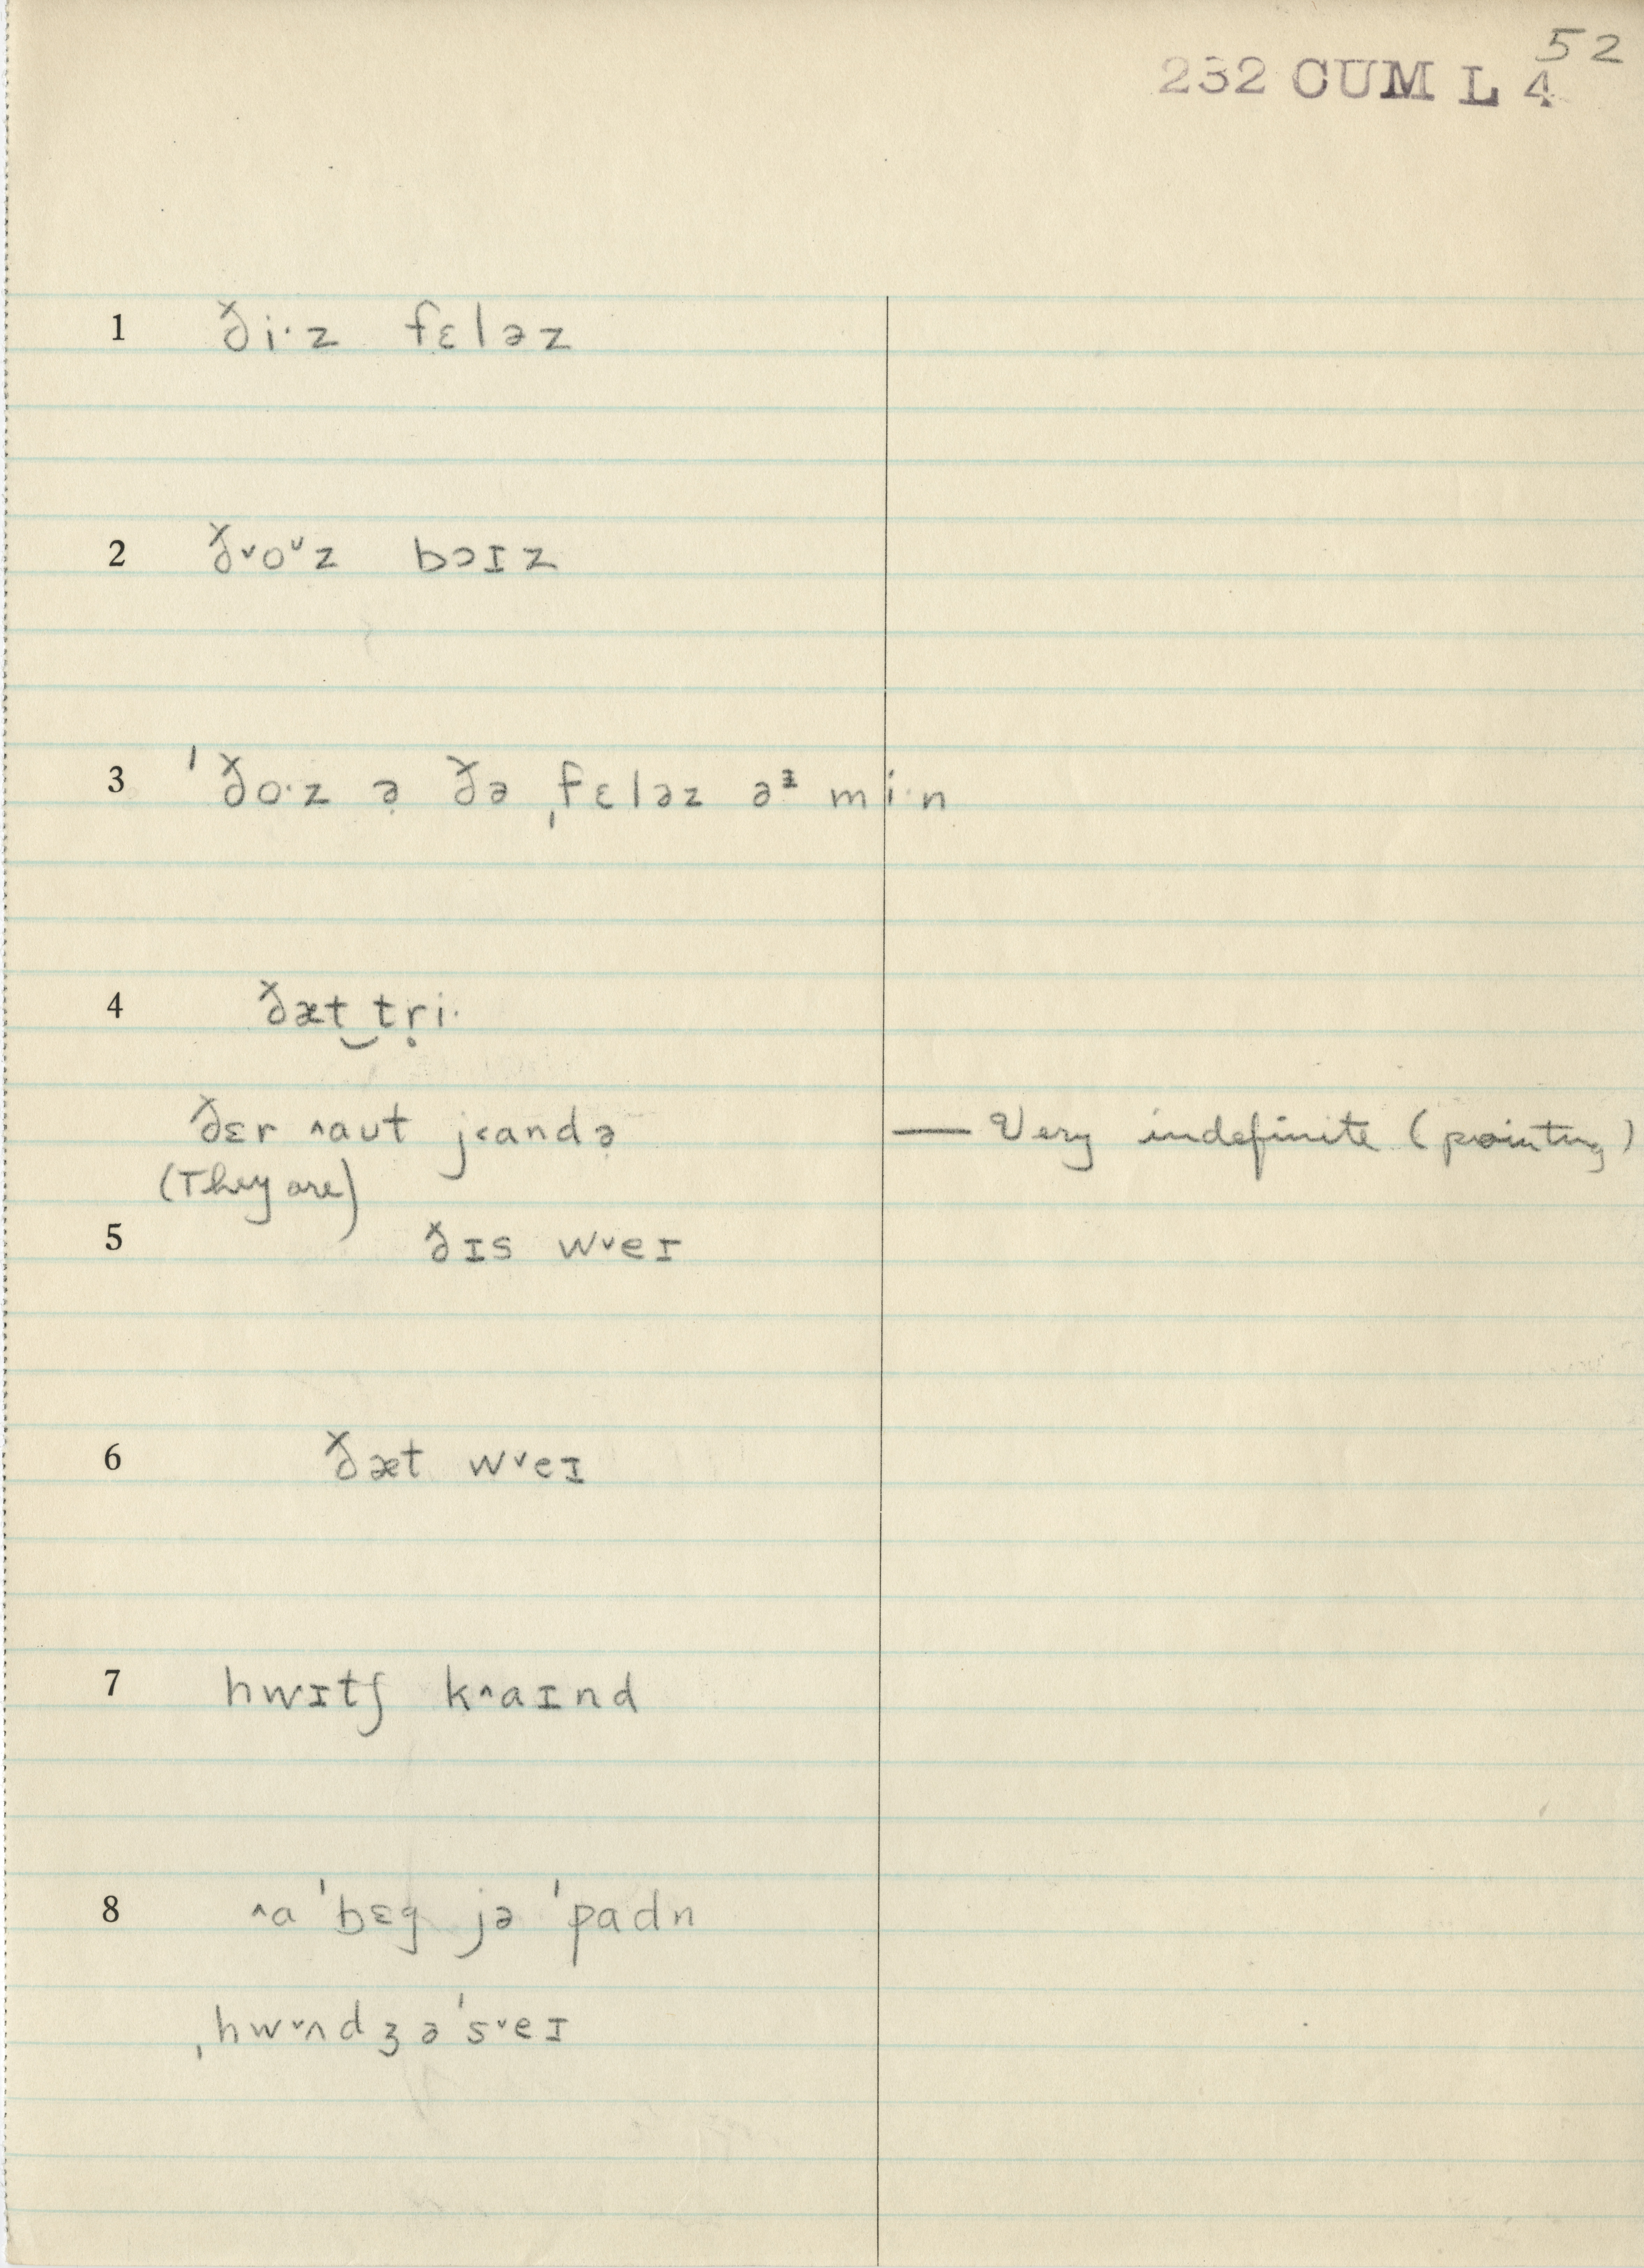 52
232 CUM L 4
1 ði·z fɛləz
2 ð˅o˅z bɔɪz
3 ˈðo·z ə̣ ðə ˌfɛləz əᶾ mi·n
4 ðæt‿tṛi·
ðɛr ˄aut j˂andə̣ — Very indefinite (pointing)
(They are)
5 ðɪs w˅eɪ
6 ðæt w˅eɪ
7 hwɪtʃ k˄aɪnd
8 ˄a ˈbɛg jə ˈpadn
ˌhw˅ʌndʒəˈs˅eɪ